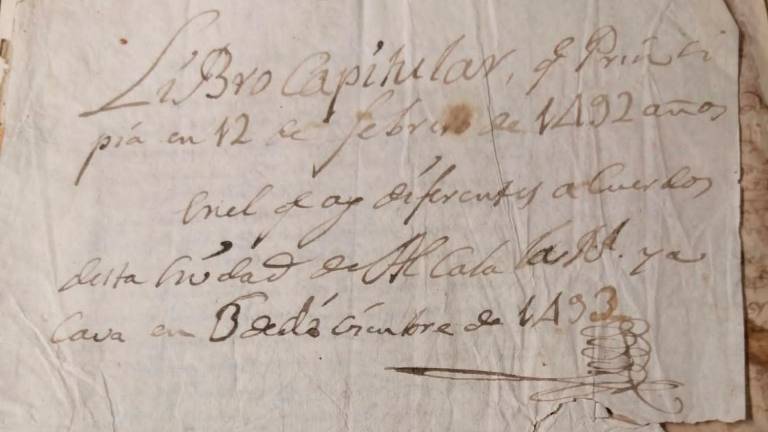 Libro Capitular, q Princi
pia en 12 de febrero de 1492 años
enel q ay diferentes acuerdos
desta Ciudad de Alcala la Rl. y a
cava en 5 de diciembre de 1493